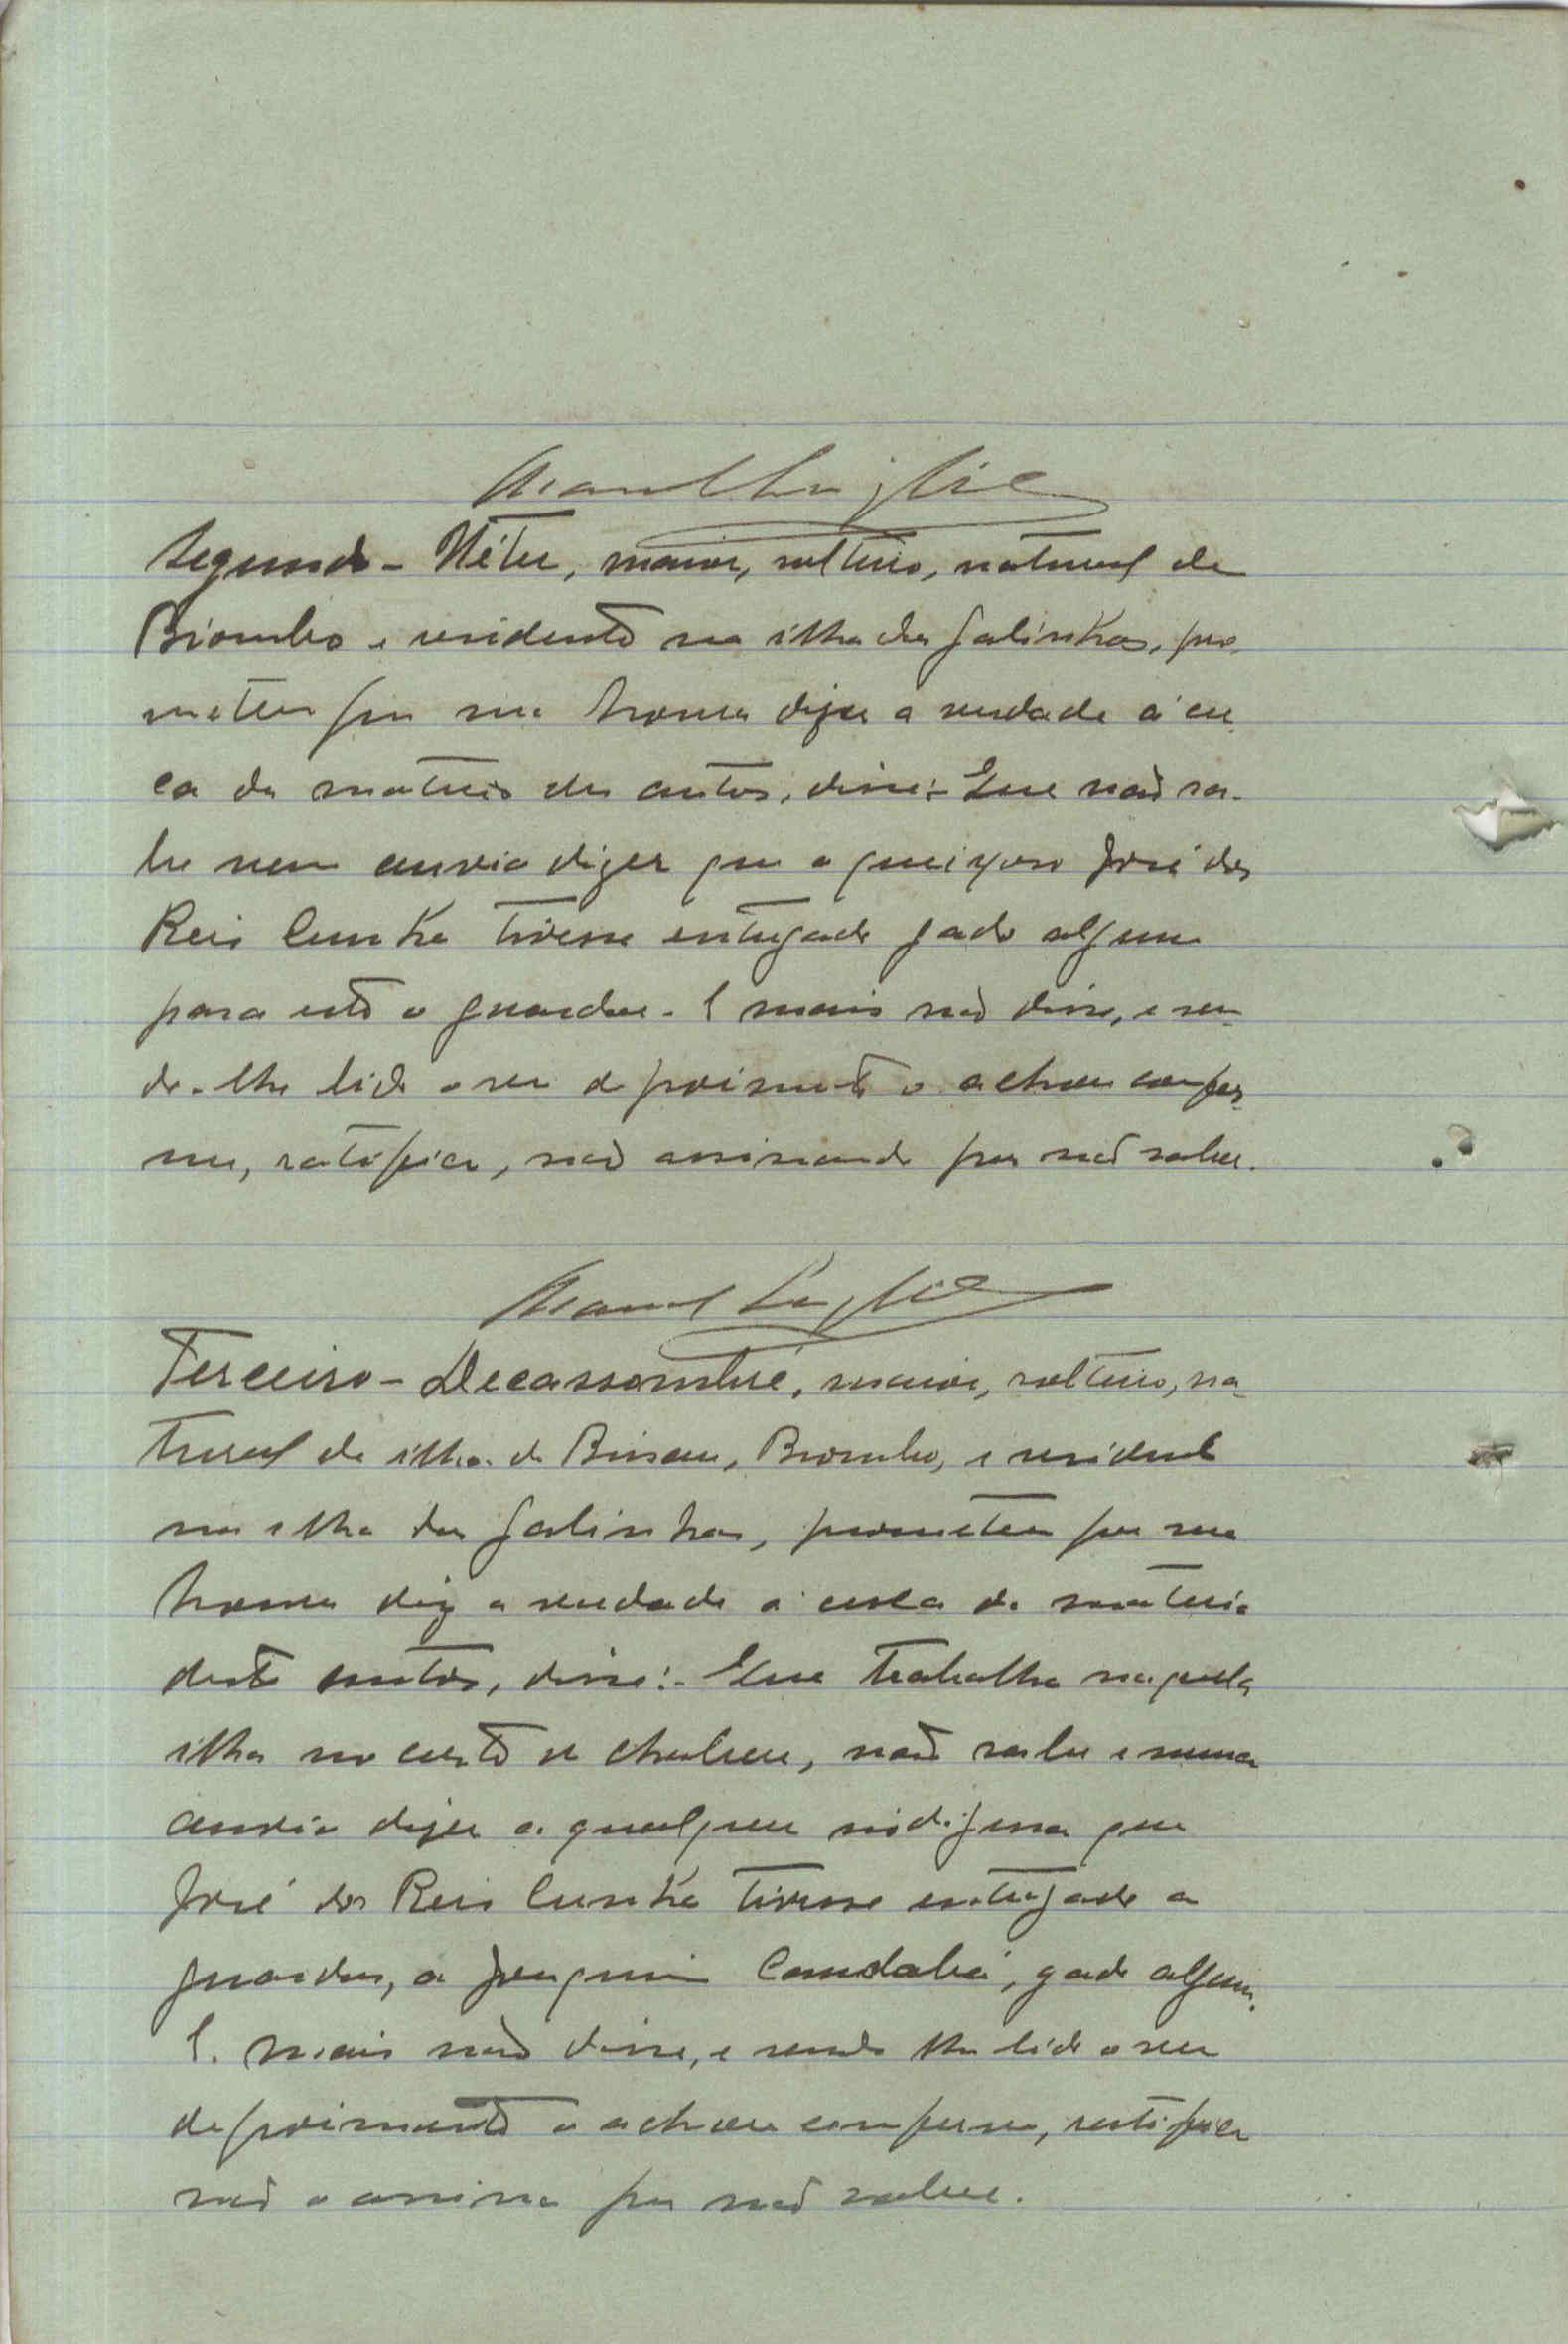 Manuel
Segundo - Néter, maior, solteiro, natural de
Biombo e residente na ilha das Galinhas, pro
meteu por sua honra dizer a verdade ácer
ca da materia dos autos, disse:- Que não sa-
be nem ouvio dizer que o queixoso José dos
Reis Cunha tivesse entregado gado algum
para este o guardar. E mais não disse, e sen
do-lhe lido o seu depoimento o achou confor
me, ratifica, não assinando por não saber.
Manuel
Terceiro - Decassombré, maior, solteiro, na
tural da ilha de Bissau, Biombo, e residente
na ilha das Galinhas, prometeu por sua
honra diz a verdade ácerca da materia
deste autos, disse:- Que trabalha naquela
ilha no de chabeu, não sabe e nunca
ouvio dizer a qualquer indigena que
José dos Reis Cunha tivesse entregado a
guardar, a Joaquim Candabá, gado algum.
E. mais não disse, e sendo lhe lido o seu
depoimento o achou conforme, ratifica
não o assina por não saber.